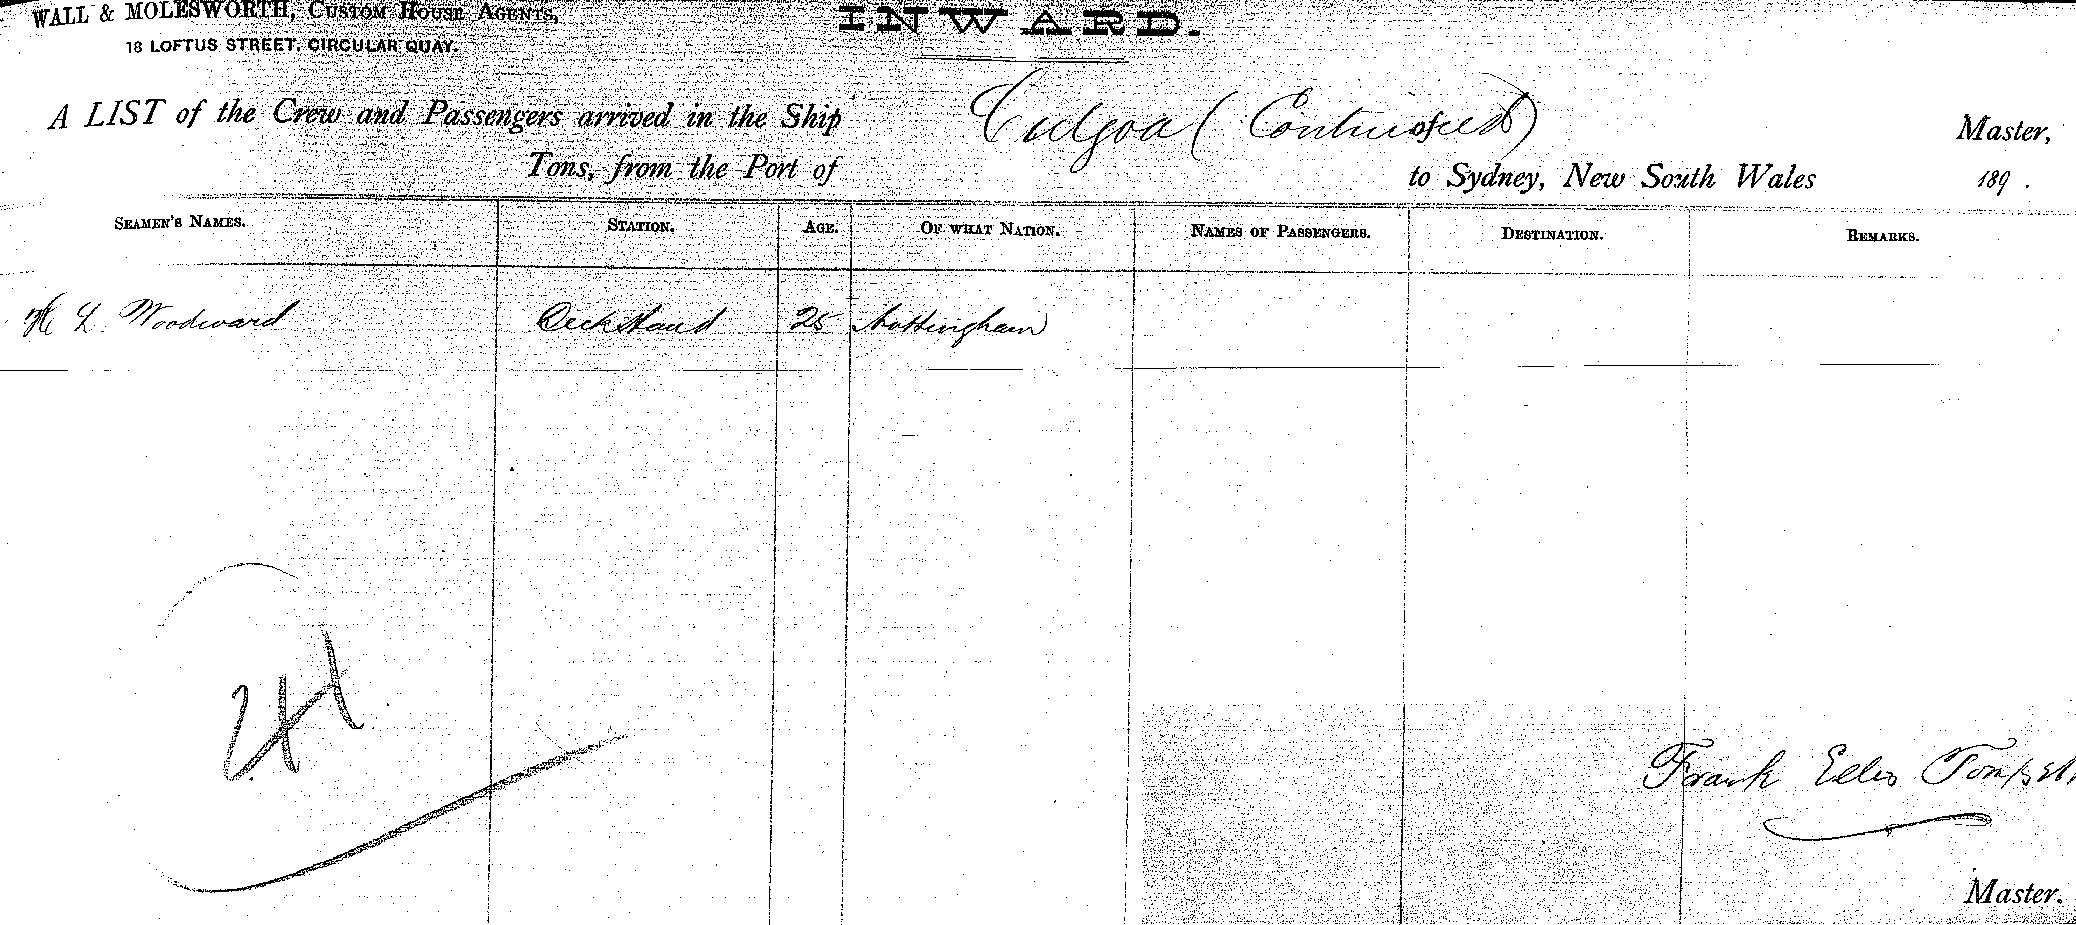 WALL & MOLESWORTH, CUSTOM HOUSE AGENTS,
18 LOFTUS STREET, CIRCULAR QUAY.
INWARD.
A LIST of the Crew and Passengers arrived in the Ship Culgoa (Continued) Master,
Tons, from the Port of to Sydney, New South Wales 189 .
SEAMEN'S NAMES. STATION. AGE. OF WHAT NATION. NAMES OF PASSENGERS. DESTINATION. REMARKS.
H L. Woodward Deck Hand 25 Nottingham
Frank Ellis
Master.